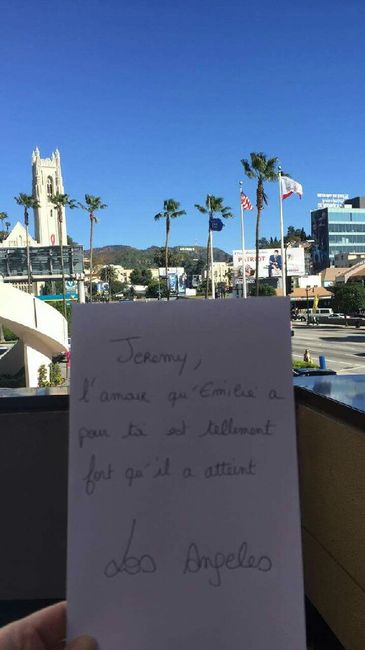 PATRIOT
Jeremy,
l'amour qu'Emilie a
pour toi est tellement
fort qu'il a atteint
Los Angeles